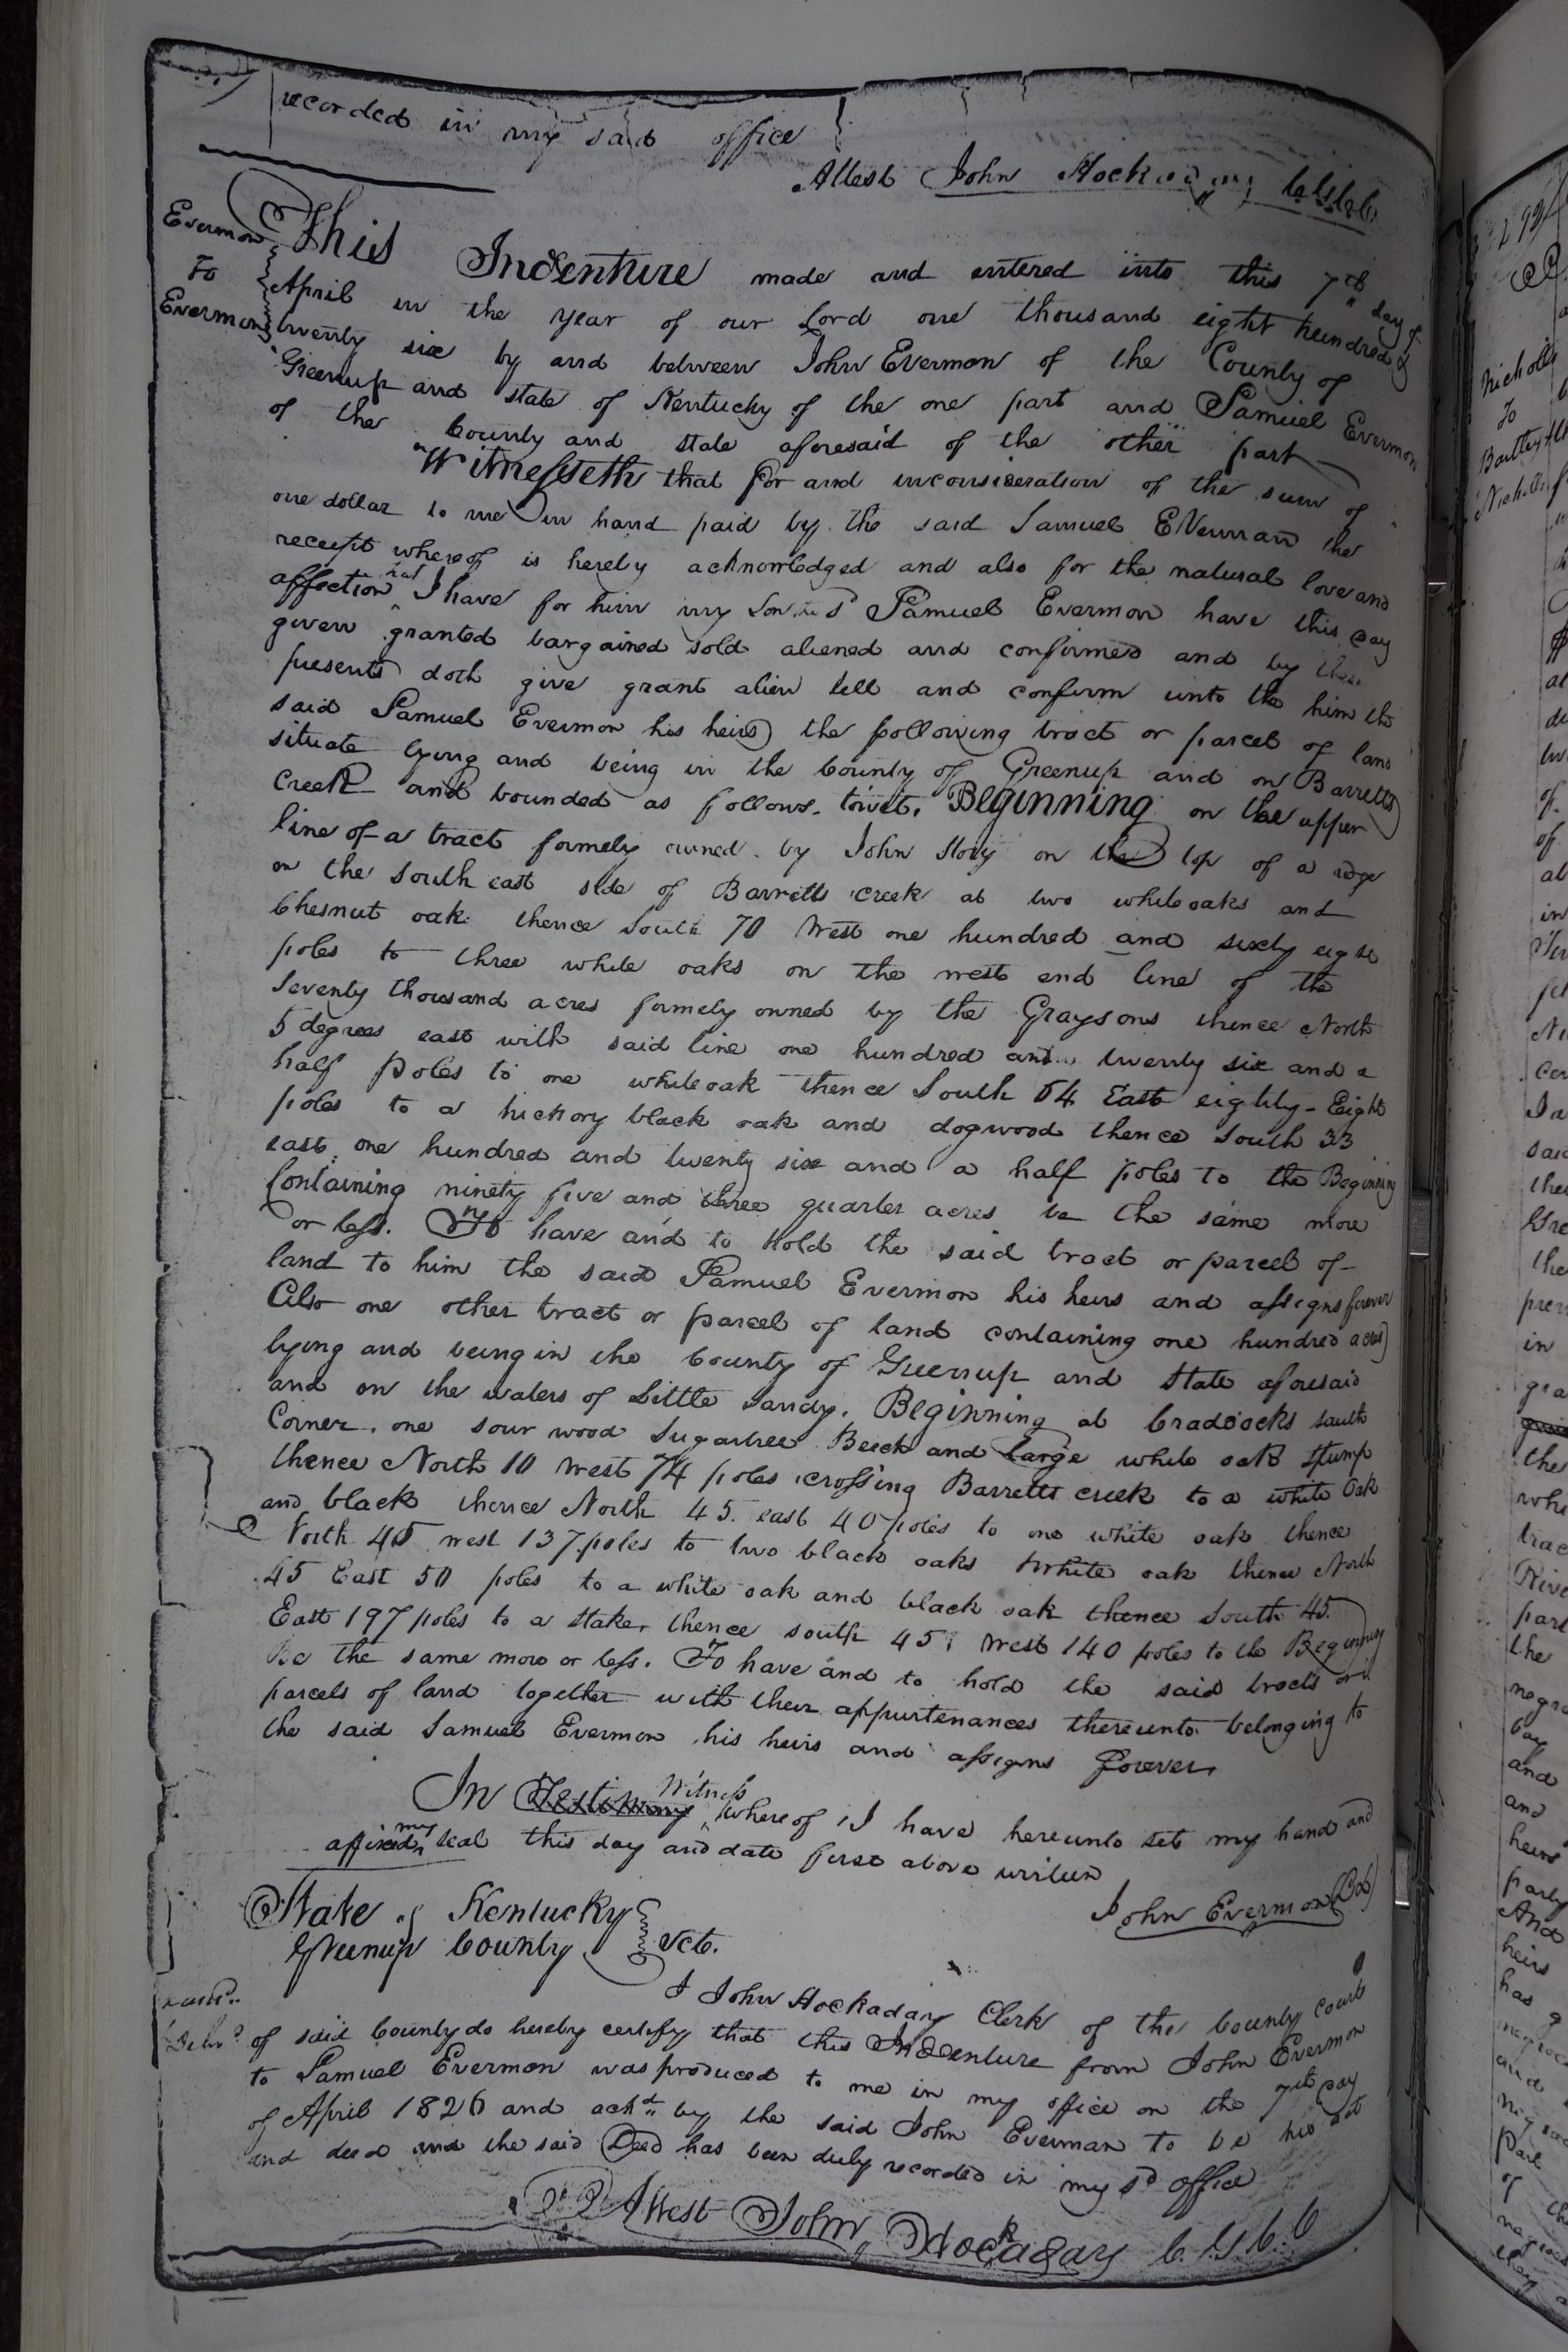 recorded in my said office
Attest John Hockaday C.G.C.C.
Evermon
To
Evermon
This Indenture made and entered into this 7th day of
April in the year of our Lord one thousand eight hundred &
twenty six by and between John Evermon of the County of
Greenup and state of Kentucky of the one part and Samuel Evermon
of the County and state aforesaid of the other part
Witnesseth that for and inconsideration of the sum of
one dollar to me in hand paid by the said Samuel Everman the
receipt whereof is hereby acknowledged and also for the natural love and
affection that I have for him my Son Samuel Evermon have this day
given granted bargained sold aliened and confirmed and by these
presents doth give grant alien sell and confirm unto the him the
said Samuel Evermon his heirs the following tract or parcel of land
situate lying and being in the County of Greenup and on Barretts
Creek and bounded as follows. towit. Beginning on the upper
line of a tract formely owned by John Story on the top of a ridge
on the South east side of Barretts creek at two white oaks and
Chesnut oak thence South 70 West one hundred and sixty eight
poles to three white oaks on the west end line of the
Seventy thousand acres formely owned by the Graysons thence North
5 degrees east with said line one hundred and twenty six and a
half poles to one white oak thence South 54 East eighty-Eight
poles to a hickory black oak and dogwood thence South 33
east one hundred and twenty six and a half poles to the Beginning
Containing ninety five and three quarter acres be the same more
or less. To have and to hold the said tract or parcel of
land to him the said Samuel Evermon his heirs and assigns forever
Also one other tract or parcel of land containing one hundred acres
lying and being in the County of Greenup and State aforesaid
and on the waters of Little Sandy. Beginning at Craddocks south
Corner. one sour wood Sugartree Beech and large white oak stump
thence North 10 West 74 poles crossing Barretts creek to a white Oak
and black thence North 45 east 40 poles to one white oak thence
North 45 west 137 poles to two black oaks & white oak thence North
45 East 50 poles to a white oak and black oak thence South 45
East 197 poles to a stake, thence south 45 West 140 poles to the Beginning
Be the same more or less. To have and to hold the said tracts or
parcels of land together with their appurtenances thereunto belonging to
the said Samuel Evermon his heirs and assigns forever.
In Testimony Witness whereof I have hereunto set my hand and
affixed my seal this day and date first above written
John Evermon
State of Kentucky
Greenup County Sct.
I John Hockaday Clerk of the County Court
of said County do hereby certify that this Indenture from John Evermon
to Samuel Evermon was produced to me in my office on the 7th day
of April 1826 and ackd by the said John Everman to be his act
and deed and the said Deed has been duly recorded in my sd office
Attest John Hockaday C.G.C.C
Nicholls
To